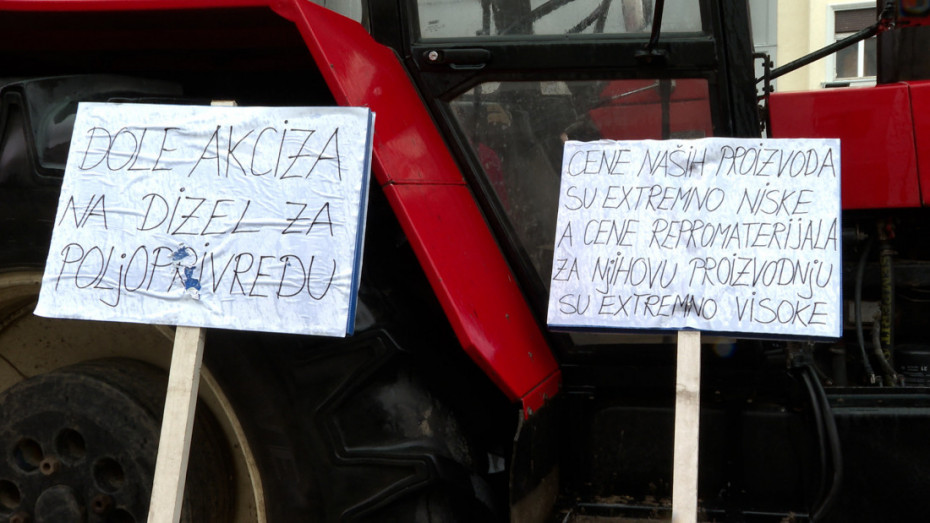 DOLE AKCIZA
NA DIZEL ZA
POLjOPRIVREDU
CENE NAŠIH PROIZVODA
SU EXTREMNO NISKE
A CENE REPROMATERIJALA
ZA NjIHOVU PROIZVODNjU
SU EXTREMNO VISOKE